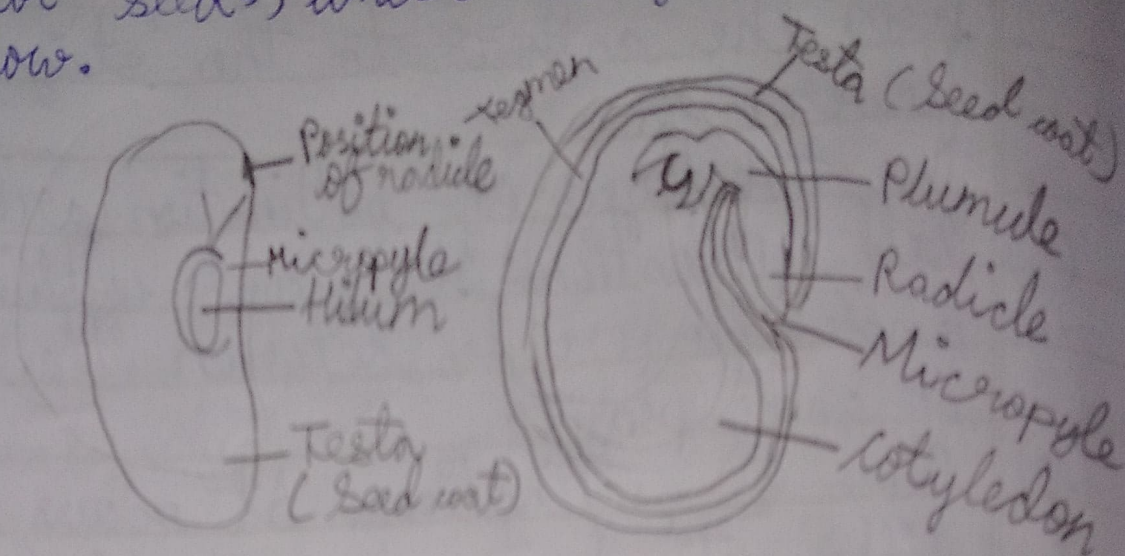 ow.
Position
of radicle
Micropyle
Hilum
Testa
(Seed coat)
Tegman
Testa (Seed coat)
Plumule
Radicle
Micropyle
Cotyledon